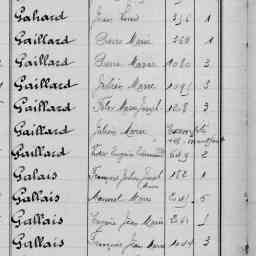 Gahard Jean Louis 256 1
Gaillard Pierre Marie 268 1
Gaillard Pierre Marie 1080 3
Gaillard Julien Marie 3
Gaillard Felix Marie Joseph 1208 3
Gaillard Julien Marie Exempté
Gaillard Victor Eugène 649 2
Galais François Julien Joseph 182 1
Marie
Gallais Manuel Marie 5
Gallais Eugène Jean Marie 261 1
Gallais François Jean Marie 1044 3